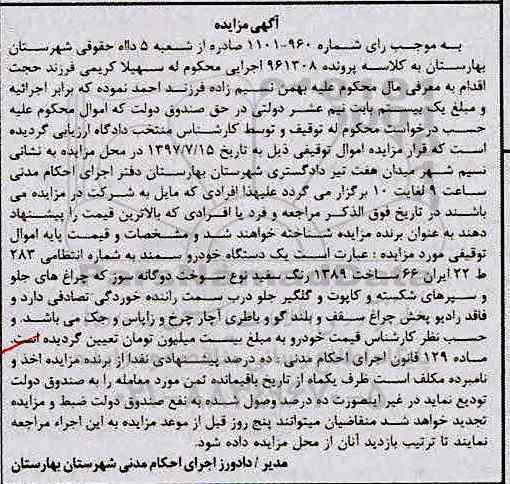 آگهی مزایده
به موجب رای شماره ۹۶۰-۱۱۰۱ صادره از شعبه ۵ دااه حقوقی شهرستان
بهارستان به کلاسه پرونده ۹۶۱۳۰۸ اجرایی محکوم له سهیلا کریمی فرزند حجت
اقدام به معرفی مال محکوم علیه بهمن نسیم زاده فرزند احمد نموده که برابر اجرائیه
و مبلغ یک بیستم بابت نیم عشر دولتی در حق صندوق دولت که اموال محکوم علیه
حسب درخواست محکوم له توقیف و توسط کارشناس منتخب دادگاه ارزیابی گردیده
است که قرار مزایده اموال توقیفی ذیل به تاریخ ۱۳۹۷/۷/۱۵ در محل مزایده به نشانی
نسیم شهر میدان هفت تیر دادگستری شهرستان بهارستان دفتر اجرای احکام مدنی
ساعت ۹ لغایت ۱۰ برگزار می گردد علیهذا افرادی که مایل به شرکت در مزایده می
باشند در تاریخ فوق الذکر مراجعه و فرد یا افرادی که بالاترین قیمت را پیشنهاد
دهند به عنوان برنده مزایده شناخته خواهند شد و مشخصات و قیمت پایه اموال
توقیفی مورد مزایده : عبارت است یک دستگاه خودرو سمند به شماره انتظامی ۲۸۳
ط ۲۲ ایران ۶۶ ساخت ۱۳۸۹ رنگ سفید نوع سوخت دوگانه سوز که چراغ های جلو
و سپرهای شکسته و کاپوت و گلگیر جلو درب سمت راننده خوردگی تصادفی دارد و
فاقد رادیو پخش چراغ سقف و بلند گو و باطری آچار چرخ و زاپاس و جک می باشد. و
حسب نظر کارشناس قیمت خودرو به مبلغ بیست میلیون تومان تعیین گردیده است.
ماده ۱۲۹ قانون اجرای احکام مدنی: ده درصد پیشنهادی نقدا از برنده مزایده اخذ و
نامبرده مکلف است ظرف یکماه از تاریخ باقیمانده ثمن مورد معامله را به صندوق دولت
تودیع نماید در غیر اینصورت ده درصد وصول شده به نفع صندوق دولت ضبط و مزایده
تجدید خواهد شد متقاضیان میتوانند پنج روز قبل از موعد مزایده به این اجراء مراجعه
نمایند تا ترتیب بازدید آنان از محل مزایده داده شود.
مدیر / دادورز اجرای احکام مدنی شهرستان بهارستان